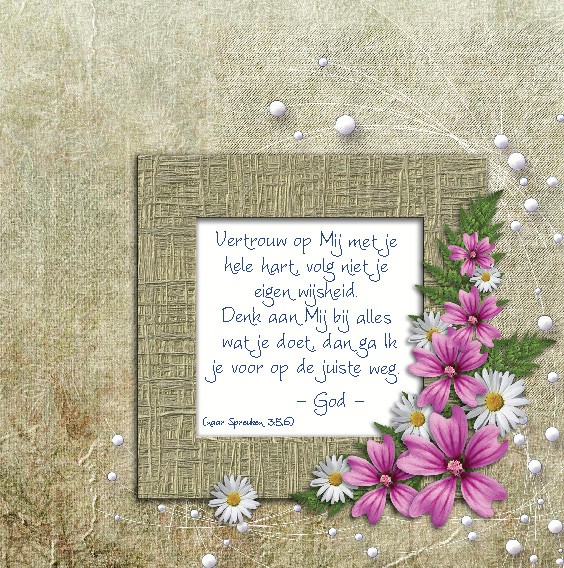 Vertrouw op Mij met je
hele hart, volg niet je
eigen wijsheid.
Denk aan Mij bij alles
wat je doet, dan ga Ik
je voor op de juiste weg.
- God -
(naar Spreuken 3:5,6)